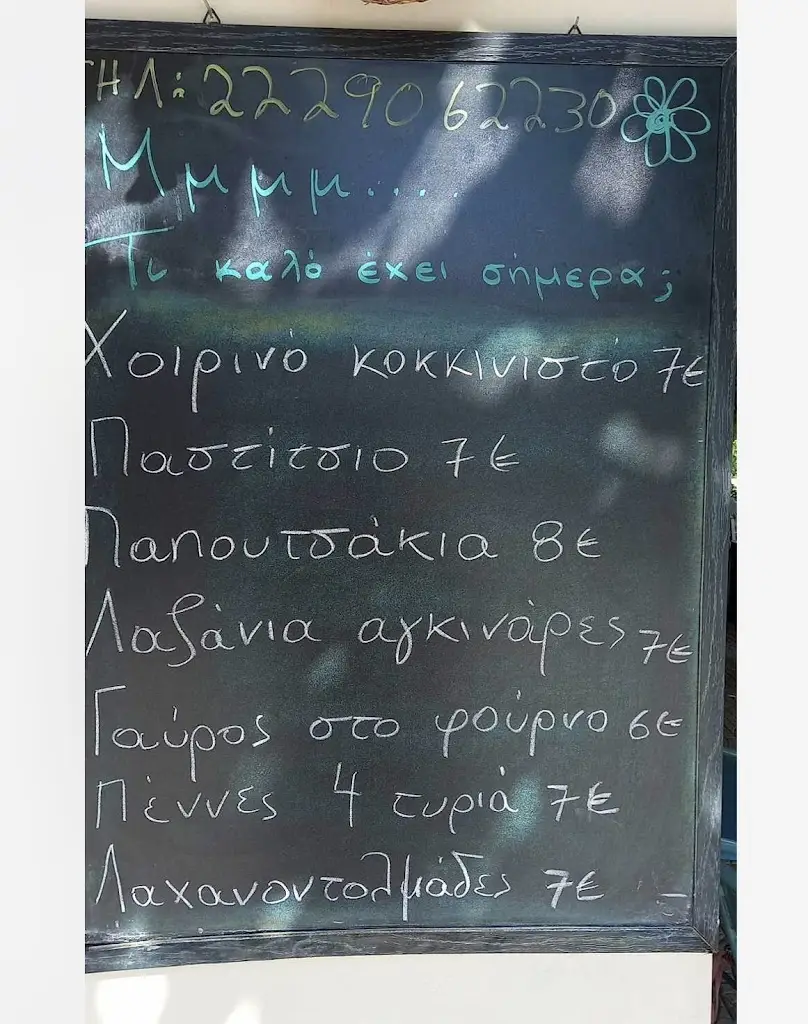 ΤΗΛ: 22290 62230
Μμμμ....
Τι καλό έχει σήμερα;
Χοιρινό κοκκινιστό 7€
Παστίτσιο 7€
Παπουτσάκια 8€
Λαζάνια αγκινάρες 7€
Γαύρος στο φούρνο 6€
Πέννες 4 τυριά 7€
Λαχανοντολμάδες 7€